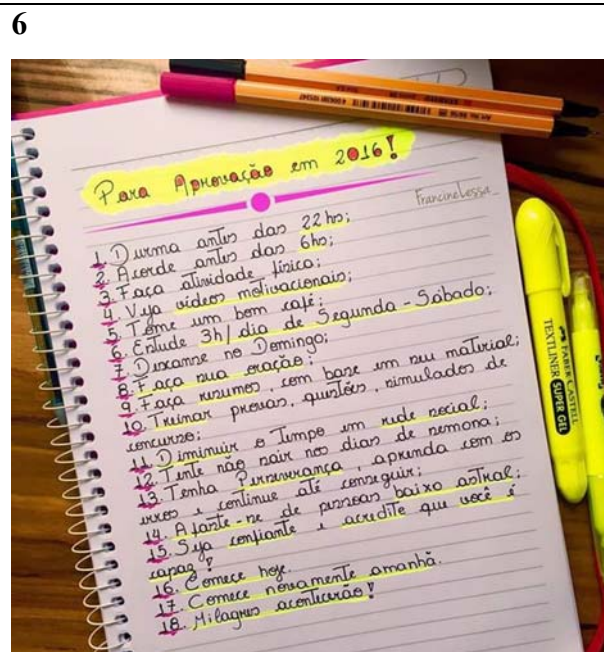 6
Para Aprovação em 2016!
FrancineLessa_
1. Durma antes das 22 hs;
2. Acorde antes das 6hs;
3. Faça atividade física;
4. Veja vídeos motivacionais;
5. Tome um bom café;
6. Estude 3h/dia de Segunda - Sábado;
7. Descanse no Domingo;
8. Faça sua oração;
9. Faça resumos, com base em seu material;
10. Treinar provas, questões, simulados de
concurso;
11. Diminuir o Tempo em rede social;
12. Tente não sair nos dias de semana;
13. Tenha Perseverança, aprenda com os
erros e continue até conseguir;
14. Afaste-se de pessoas baixo astral;
15. Seja confiante e acredite que você é
capaz!
16. Comece hoje.
17. Comece novamente amanhã.
18. Milagres acontecerão!
FABER CASTELL
TEXTLINER SUPER GEL